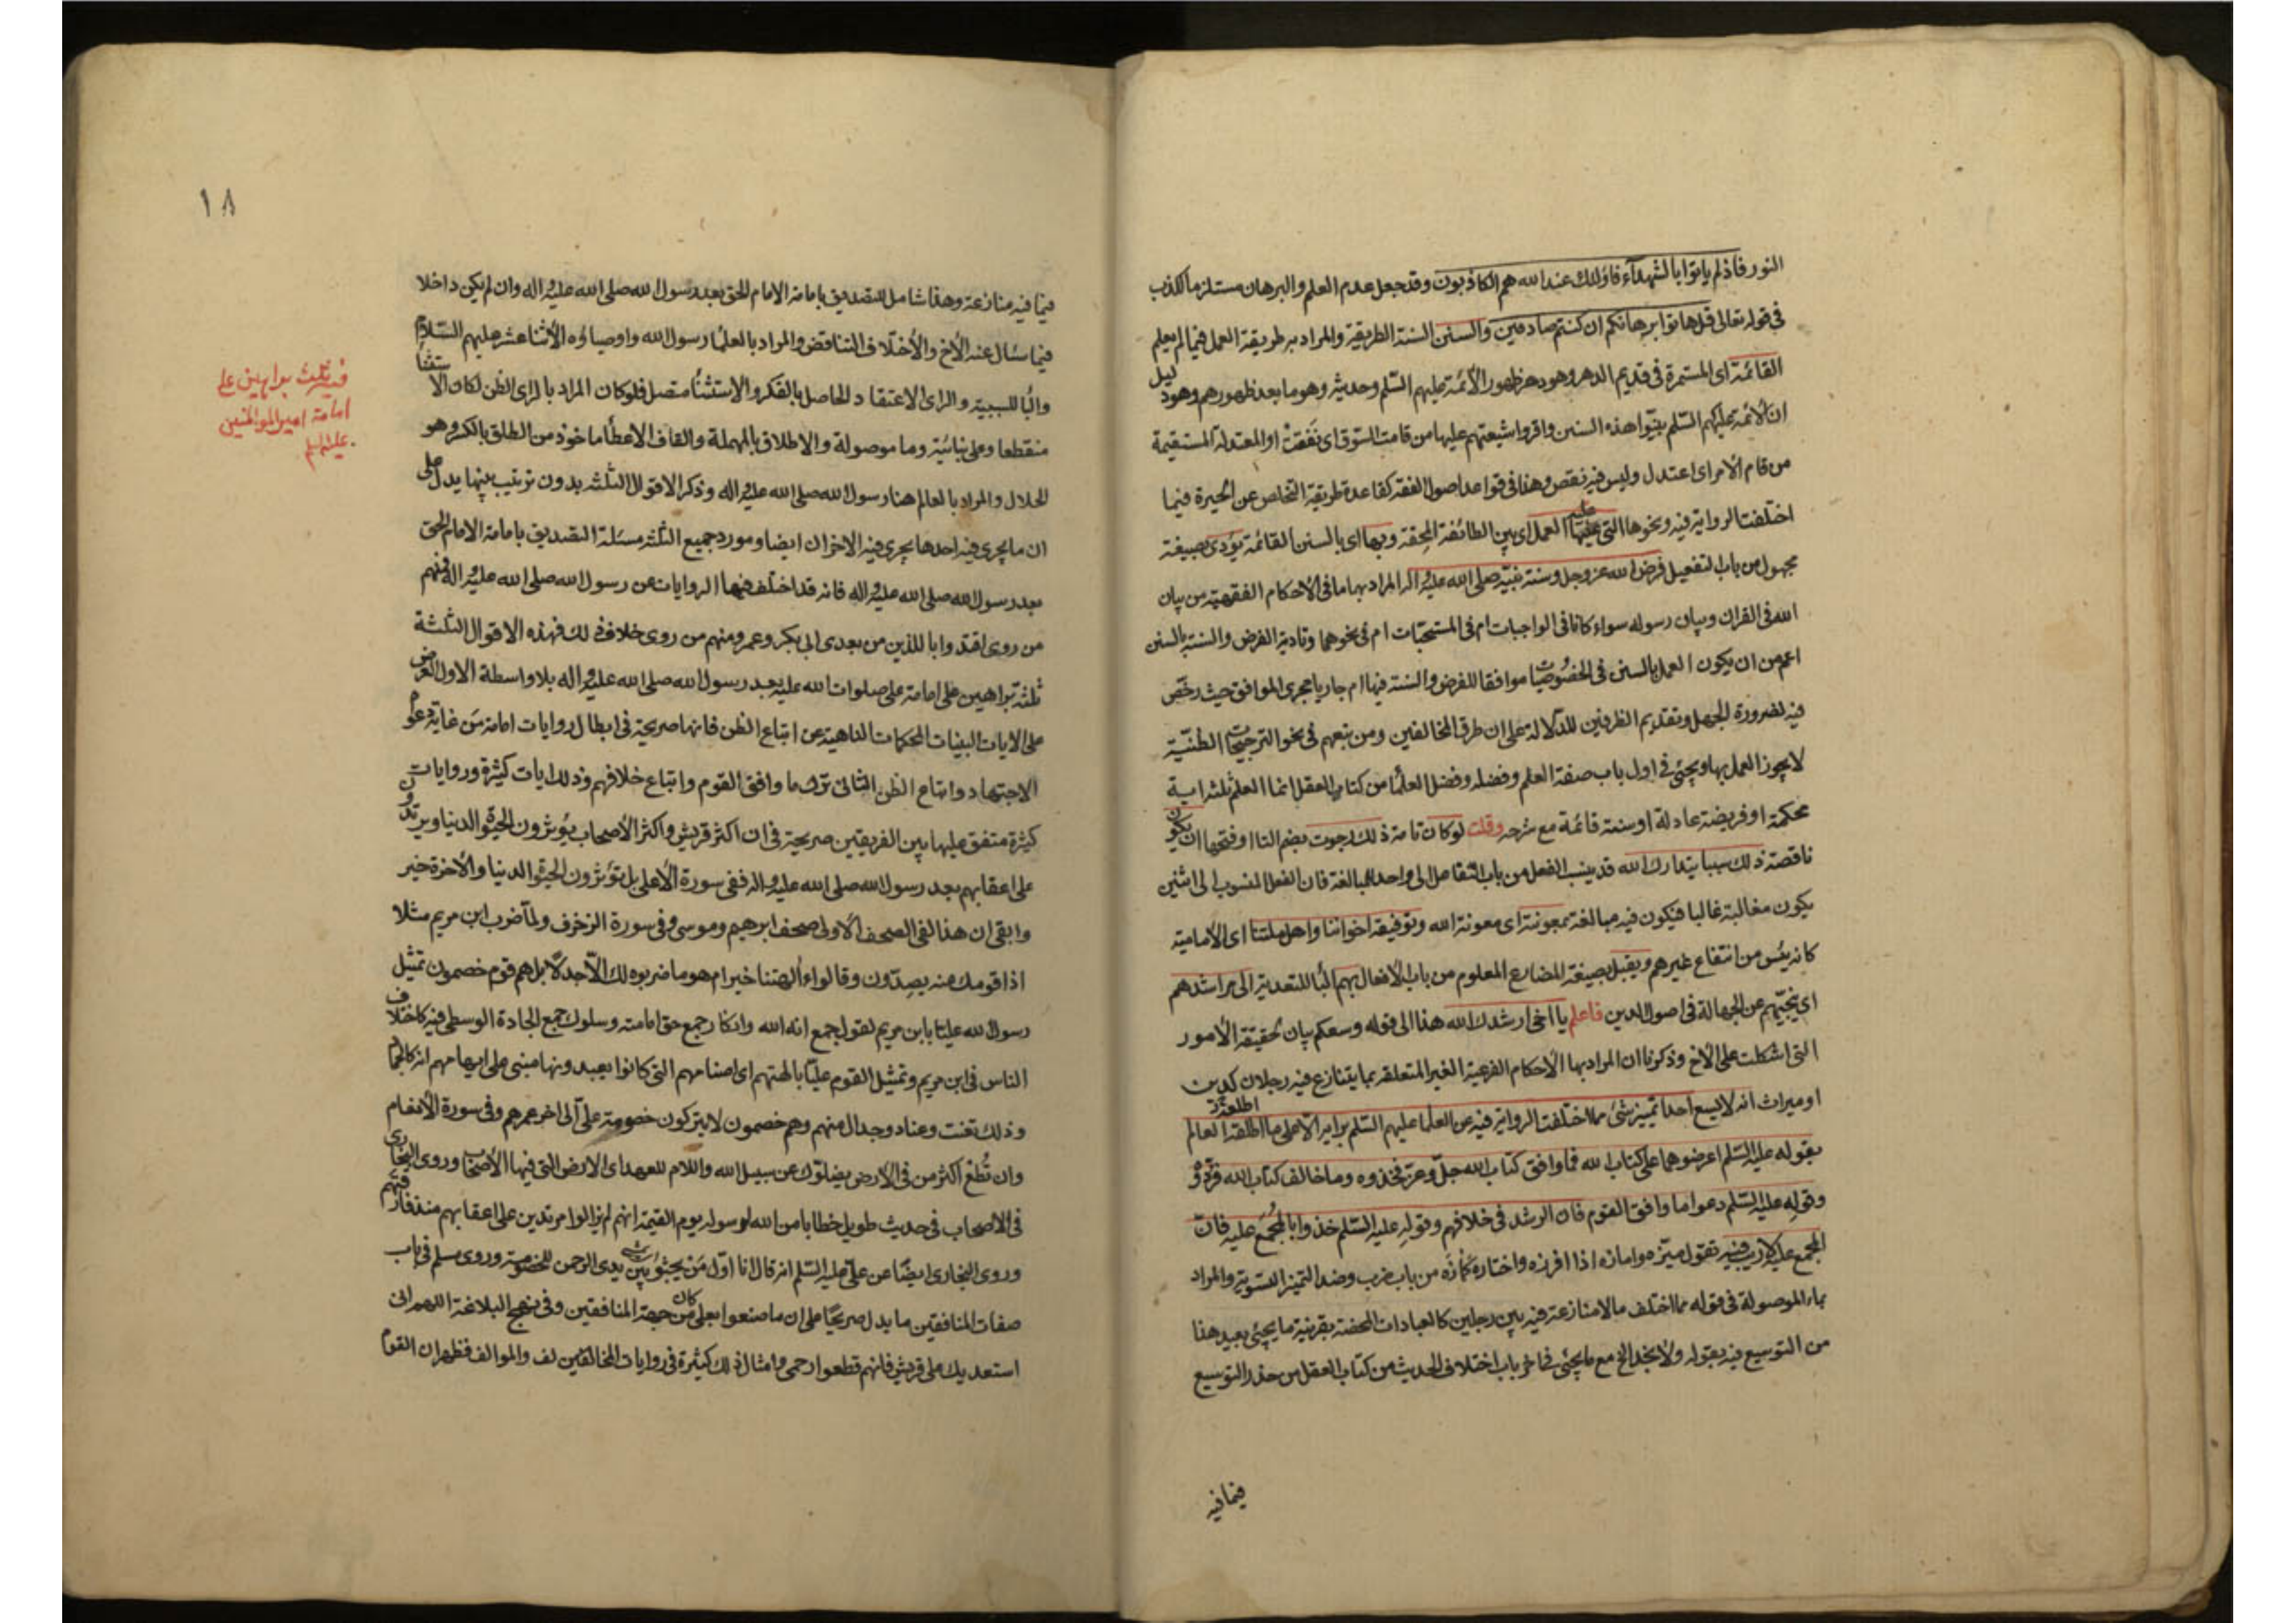 النور فاذ لم ياتوا بالشهدآء فاولئك عند الله هم الكاذبون وقد جعل عدم العلم والبرهان مستلزما للكذب
فى قوله تعالى قل هاتوا برهانكم ان كنتم صادقين والسنن السنة الطريقة والمراد به طريقة العمل فيما لم يعلم
القائمة اى المستمرة فى قديم الدهر وهو دهر ظهور الائمة عليهم السّلم وحديثه وهو ما بعد ظهورهم وهو دليل
ان الائمة عليهم السّلم بيّنوا هذه السنن واقروا شيعتهم عليها من قامت السّوق اى نَفَقَتْ او المعتدلة المستقيمة
من قام الامر اى اعتدل وليس فيه نقص وهذا فى قواعد اصول الفقه كقاعدة طريقة التخلص عن الحيرة فيما
اختلفت الرواية فيه ونحوها التى عليها العمل اى بين الطائفة المحقة وبها اى بالسنن القائمة يؤدى بصيغة
مجهول من باب التفعيل فرض الله عز وجل وسنة نبيّه صلى الله عليه واله المراد بهما ما فى الاحكام الفقهية من بيان
الله فى القران وبيان رسوله سواء كانا فى الواجبات ام فى المستحبّات ام فى نحوهما وتادية الفرض والسنة بالسنن
اعم من ان يكون العمل بالسنن فى الخصُوصيّات موافقا للفرض والسنة فيها ام جاريا مجرى الموافق حيث رخّص
فيه لضرورة الجهل وتقديم الظرفين للدلالة على ان طرق المخالفين ومن تبعهم فى نحو الترجيحات الظنّيّة
لا يجوز العمل بها ويجئ فى اول باب صفة العلم وفضله وفضل العلمآ من كتاب العقل انما العلم ثلثة اية
محكمة او فريضة عادلة او سنة قائمة مع شرحه وقلت لو كان تامة ذلك رجوت بضم التاء او فتحها ان يكون
ناقصة ذلك سببا يتدارك الله قد ينسب الفعل من باب التفاعل الى واحد للمبالغة فان الفعل المنسوب الى اثنين
يكون مغالبة غالبا فيكون فيه مبالغة بمعونته اى معونة الله وتوفيقه اخواننا واهل ملتنا اى الامامية
كانه يئس من انتفاع غيرهم ويقبل بصيغة المضارع المعلوم من باب الافعال بهم البا للتعدية الى مراشدهم
اى ينجيّهم عن الجهالة فى اصول الدين فاعلم يا اخى ارشدك الله هذا الى قوله وسعكم بيان لحقيقة الامور
التى اشكلت على الاخ وذكرنا ان المراد بها الاحكام الفرعية الغير المتعلقة بما يتنازع فيه رجلان كدين
او ميراث انه لا يسع احدا تمييز شئ مما اختلفت الرواية فيه عن العلمآ عليهم السّلم برايه الا على ما اطلقه العالم
بقوله عليه السّلم اعرضوها على كتاب الله فما وافق كتاب الله جلّ وعز فخذوه وما خالف كتاب الله فردّوه
وقوله عليه السّلم دعوا ما وافق القوم فان الرشد فى خلافهم وقوله عليه السّلم خذوا بالمُجْمَع عليه فانّ
المجمع عليه لا ريب فيه تقول ميّزه وامازه اذا افرزه واختاره كمَازَه من باب ضرب وضد التميز التسوية والمراد
بما الموصولة فى قوله مما اختلف ما لا منازعة فيه بين رجلين كالعبادات المحضة بقرينة ما يجئ بعيد هذا
من التوسيع فيه بقوله ولا نجد الخ مع ما يجئ فى اخر باب اختلاف الحديث من كتاب العقل من حذر التوسيع
فيما فيه
١٨
فيما فيه منازعة وهذا شامل للتصديق بامامة الامام الحق بعد رسول الله صلى الله عليه واله وان لم يكن داخلا
فيما سئال عنه الاخ والاختلاف التناقض والمراد بالعلمآ رسول الله واوصياؤه الاثنا عشر عليهم السّلام
والبا للسببية والراى الاعتقاد الحاصل بالفكر والاستثنآ متصل فلو كان المراد بالراى الظن لكان الاستثنآ
منقطعا وعلى بنائية وما موصولة والاطلاق بالمهملة والقاف الاعطآ ماخوذ من الطلق بالكسر وهو
الحلال والمراد بالعالم هنا رسول الله صلى الله عليه واله وذكر الاقوال الثلثة بدون ترتيب بينها يدل على
ان ما يجرى فيه احدها يجرى فيه الاخران ايضا ومورد جميع الثلثة مسئلة التصديق بامامة الامام الحق
بعد رسول الله صلى الله عليه واله فانه قد اختلف فيها الروايات عن رسول الله صلى الله عليه واله فمنهم
من روى اقتدوا بالذين من بعدى ابى بكر وعمر ومنهم من روى خلاف ذلك فهذه الاقوال الثلثة
ثلثة براهين على امامة على صلوات الله عليه بعد رسول الله صلى الله عليه واله بلا واسطة الاول العرض
على الايات البينات المحكمات الناهية عن اتباع الظن فانها صريحة فى ابطال روايات امامة مَن غاية دعواه
الاجتهاد واتباع الظن الثانى ترك ما وافق القوم واتباع خلافهم وذلك ايات كثيرة وروايات
كثيرة متفق عليها بين الفريقين صريحة فى ان اكثر قريش واكثر الاصحاب يؤثرون الحيوة الدنيا ويرتدون
على اعقابهم بعد رسول الله صلى الله عليه واله ففى سورة الاعلى بل تؤثرون الحيوة الدنيا والاخرة خير
وابقى ان هذا لفى الصحف الاولى صحف ابرهيم وموسى وفى سورة الزخرف ولمّا ضرب ابن مريم مثلا
اذا قومك منه يصدّون وقالوا ءالهتنا خير ام هو ما ضربوه لك الّا جدلًا بل هم قوم خصمون تمثيل
رسول الله عليّا بابن مريم لقول جمع انه الله وانكار جمع حق امامته وسلوك جمع الجادة الوسطى فيه كاختلاف
الناس فى ابن مريم وتمثيل القوم عليّا بالهتهم اى اصنامهم التى كانوا يعبدونها مبنى على ايهامهم انه كالجماد
وذلك تعنت وعناد وجدال منهم وهم خصمون لا يتركون خصومة علىّ الى اخر عمرهم وفى سورة الانعام
وان تُطع اكثر من فى الارض يضلوك عن سبيل الله واللام للعهد اى الارض التى فيها الاصحاب وروى البخارى
فى الاصحاب فى حديث طويل خطابا من الله لرسوله يوم القيمة انهم لم يزالوا مرتدين على اعقابهم منذ فارقتهم
وروى البخارى ايضا عن علىّ عليه السّلم انه قال انا اوّل من يجثو بين يدى الرحمن للخصومة وروى مسلم فى باب
صفات المنافقين ما يدل صريحًا على ان ما صنعوا بعلى كان من جهة المنافقين وفى نهج البلاغة اللهم انى
استعديك على قريش فانهم قطعوا رحمى وامثال ذلك كثيرة فى روايات المخالف والموالف فظهر ان القوم
فيه ثلث براهين على
امامة امير المومنين
عليه السلم